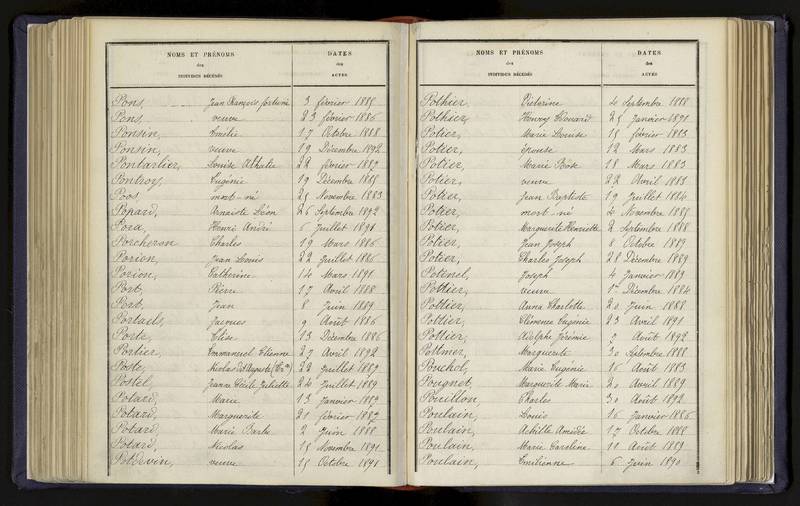 NOMS ET PRÉNOMS
des
INDIVIDUS DÉCÉDÉS
DATES
des
ACTES
Pons, Jean François fortuné 3 février 1885
Pons, veuve 23 février 1886
Ponsin, Emilie 17 Octobre 1888
Ponsin, veuve 19 Décembre 1892
Pontarlier, Louise 22 février 1887
Eugénie 19 Décembre 1885
Poos, mort-né 25 Novembre 1883
Popard, Léon 26 Septembre 1892
Pora, Henri André Juillet 1891
Porcheron Charles 19 Mars 1886
Porion, Jean Louis 22 Juillet 1886
Porion, Catherine 14 Mars 1891
Port, Pierre 17 Avril 1888
Port, Jean 8 Juin 1889
Portails, Jacques 9 Août 1886
Porte, Elise 13 Décembre 1886
Portier, Emmanuel Etienne 27 Avril 1892
Poste, Nicolas 22 Juillet 1889
Postel, Jeanne Cécile Juliette 24 Juillet 1889
Potard, Marie 13 Janvier 1889
Potard, Marguerite 21 février 1887
Potard, Marie 2 Juin 1888
Potard, Nicolas 15 Novembre 1891
Potdevin, veuve 15 Octobre 1891
NOMS ET PRÉNOMS
des
INDIVIDUS DÉCÉDÉS
DATES
des
ACTES
Pothier, Victorine 4 Septembre 1888
Pothier, Henry Edouard 25 Janvier 1891
Potier, Marie Louise 15 février 1883
Potier, épouse 12 Mars 1883
Potier, Marie Rose 18 Mars 1883
Potier, veuve 22 Avril 1883
Potier, Jean Baptiste 19 Juillet 1884
Potier, mort-né 4 Novembre 1885
Potier, Marguerite Henriette 2 Septembre 1888
Potier, Jean Joseph 8 Octobre 1889
Potier, Charles Joseph 28 Décembre 1889
Joseph 4 Janvier 1889
Pottier, veuve 1er Décembre 1884
Pottier, Anna Charlotte 20 Juin 1888
Pottier, Clémence Eugénie 23 Avril 1891
Pottier, Adolphe Jérémie Août 1892
Pottmer, Marguerite 30 Septembre 1888
Pouchol, Marie Eugénie 16 Août 1883
Pougnet, Marguerite Marie 20 Avril 1889
Pouillon, Charles 30 Août 1892
Poulain, Louis 16 Janvier 1886
Poulain, Achille Amédée 17 Octobre 1888
Poulain, Marie Caroline 11 Août 1889
Poulain, Emilienne 6 Juin 1890